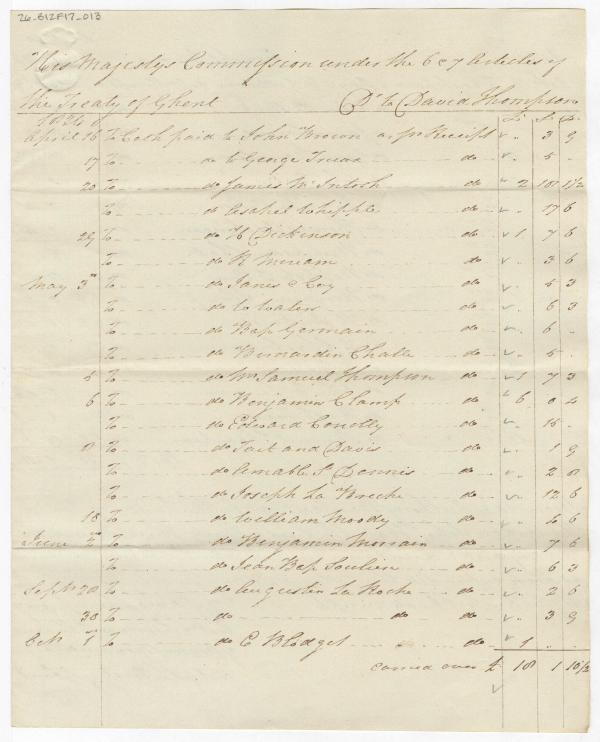 26-B12F17-013
His Majestys Commission under the 6 & 7 Articles of
the Treaty of Ghent Dr to David Thompson
£ S. D.
April 16 To Cash paid to John Brown as pr Receipt 3 9
17 To do to George Truax do 5 -
20 To do James McIntosh do 2 18 1 1/2
To do Asahel Whipple do 17 6
29 To do H Dickinson do 1 7 6
To do R Miriam do 3 6
May 3rd To do Janes & Coy do 5 3
To do do 6 3
To do Bap Germain do 6 -
To do Bernardin Challe do 5 -
5 To do Wm Samuel Thompson do 1 7 3
6 To do Benjamin Clamp do 6 0 4
To do Edward Conolly do 15 -
8 To do Tait and Davis do 1 9
To do Amable St Dennis do 2 8
To do Joseph La Breche do 12 6
18 To do William Moody do 6
June 2nd To do Benjamin Morrain do 7 6
To do Jean Bap Soulien do 6 3
Sept 20 To do Augustin La Roche do 2 6
30 To do do do 3 9
Oct 1 To do E Blodget do 1 . .
carried over £ 18 1 10 1/2